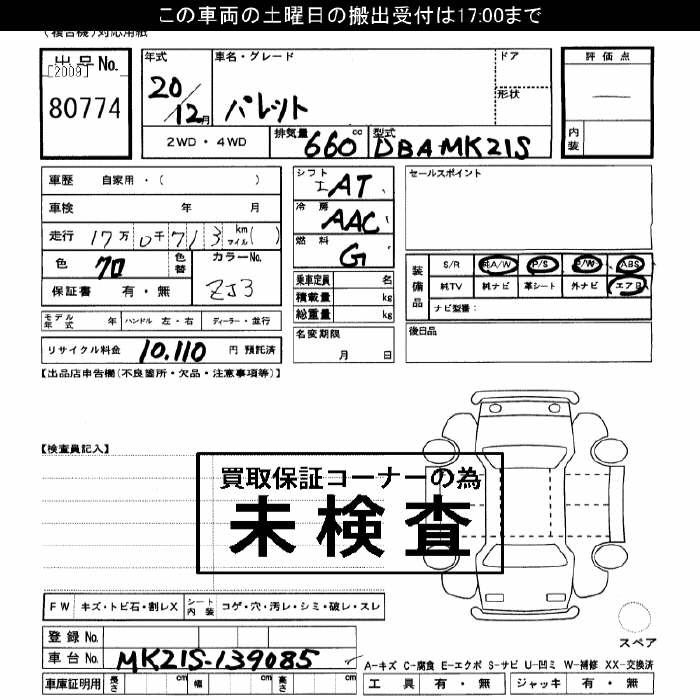 この車両の土曜日の搬出受付は17:00まで
(複合機)対応用紙
出品No.
[2009]
80774
年式
20/12月
車名・グレード
パレット
ドア
形状
評価点
内装
2WD・4WD
排気量 660 cc
型式 DBA-MK21S
車歴 自家用・( )
車検 年 月
走行 17万0千713 km マイル( )
色 クロ
色替
カラーNo. ZJ3
保証書 有・無
モデル年式 年 ハンドル 左・右 ディーラー・並行
リサイクル料金 10.110 円 預託済
シフト AT
冷房 AAC
燃料 G
乗車定員 名
積載量 kg
総重量 kg
名変期限
月 日
セールスポイント
装備品
S/R 純A/W P/S P/W ABS
純TV 純ナビ 革シート 外ナビ エアB
ナビ型番:
後日品
【出品店申告欄(不良箇所・欠品・注意事項等)】
【検査員記入】
買取保証コーナーの為
未検査
FW キズ・トビ石・割レX シート内装 コゲ・穴・汚レ・シミ・破レ・スレ
登録No.
車台No. MK21S-139085
車庫証明用 長さ cm 幅 cm 高さ cm
スペア
A-キズ C-腐食 E-エクボ S-サビ U-凹ミ W-補修 XX-交換済
工具 有・無 ジャッキ 有・無